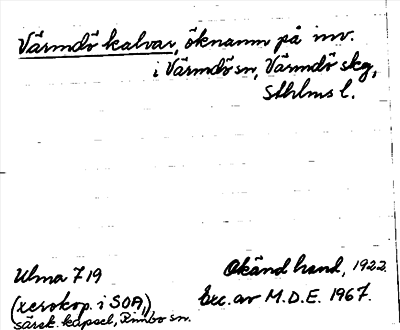 Värmdö kalvar, öknamn på inv.
i Värmdö sn, Värmdö skg,
Sthlms l.
Ulma 719
(xerokop. i SOA,)
särsk. kapsel, Rimbo sn.
Okänd hand, 1922.
Exc. av M.D.E. 1967.